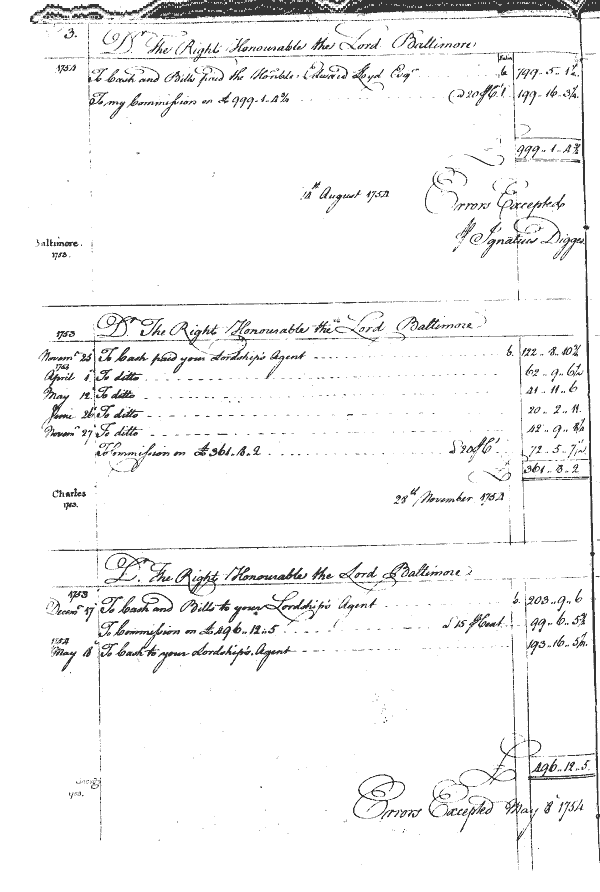 3.
Dr. The Right Honourable the Lord Baltimore
1754
To Cash and Bills paid the Honble. Edward Lloyd Esqr 6. 799..5..1½
To my Commission on £999..1..4¾ @ 20 P Ct. 199..16..3¼
£ 999..1..4¾
14th August 1754
Errors Excepted
P Ignatius Digges
Baltimore.
1753.
1753 Dr. The Right Honourable the Lord Baltimore
Novemr 25 To Cash paid your Lordship's Agent 6. 122..8..10½
April To ditto 62..9..6½
May 12 To ditto 41..11..6
June 26 To ditto 20..2..11
Novemr 27 To ditto 42..9..8¼
To Commission on £361..8..2 @ 20 P Ct. 72..5..7½
£ 361..8..2
Charles
1753.
28th November 1754
Dr. The Right Honourable the Lord Baltimore
1753
Decemr 17 To Cash and Bills to your Lordship's Agent 6. 203..9..6
To Commission on £496..12..5 P Cent. 99..6..5¾
1754
May 8 To Cash to your Lordship's Agent 193..16..5¼
£ 496..12..5
1753.
Errors Excepted May 8 1754